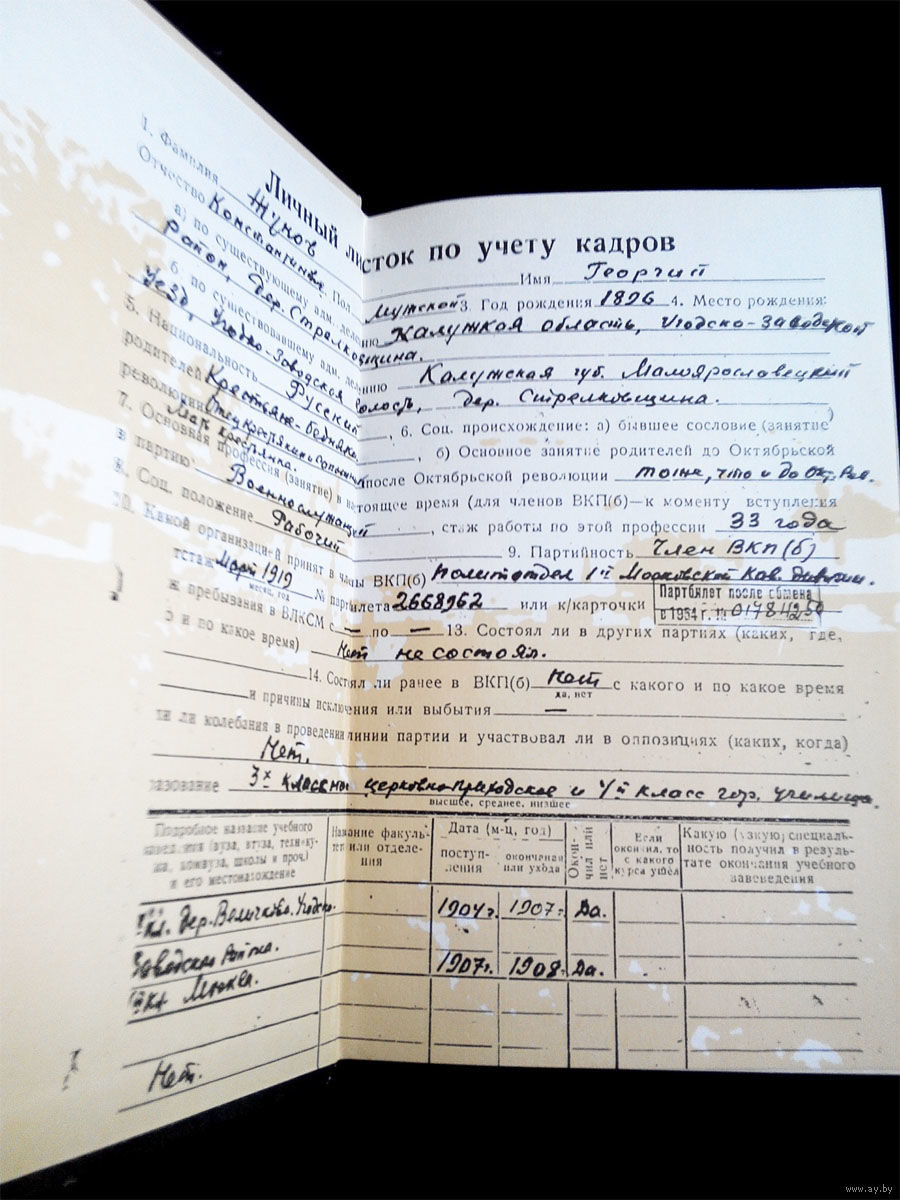 Личный листок по учету кадров
1. Фамилия Жуков Имя Георгий
Отчество Константинович Пол Мужской 3. Год рождения 1896 4. Место рождения:
а) по существующему адм. делению Калужская область, Угодско-Заводской
район, дер. Стрелковщина.
б) по существовавшему адм. делению Калужская губ. Малоярославецкий
уезд, Угодско-Заводская волость, дер. Стрелковщина.
5. Национальность Русский, 6. Соц. происхождение: а) бывшее сословие (занятие
родителей) Крестьяне-бедняки, б) Основное занятие родителей до Октябрьской
революции после Октябрьской революции тоже, что и до Окт. Рев.
7. Основная профессия (занятие) в настоящее время (для членов ВКП(б)—к моменту вступления
в партию) Военнослужащий, стаж работы по этой профессии 33 года
8. Соц. положение Рабочий 9. Партийность Член ВКП(б)
10. Какой организацией принят в члены ВКП(б) Политотдел 1й Московской Кав. дивизии.
тстаж март 1919 № партбилета 2668962 или к/карточки
месяц, год
Партбилет после обмена
в 1954 г. №
ж пребывания в ВЛКСМ с — по — 13. Состоял ли в других партиях (каких, где,
э и по какое время) Нет не состоял.
14. Состоял ли ранее в ВКП(б) Нет с какого и по какое время
да, нет
и причины исключения или выбытия —
ли ли колебания в проведении линии партии и участвовал ли в оппозициях (каких, когда)
Нет.
разование 3х классное церковноприходское и 4й класс гор. училища.
высшее, среднее, низшее
Подробное название учебного заведения (вуза, втуза, технику-
ма, комвуза, школы и проч.)
и его местонахождение
Название факуль-
тета или отделе-
ния
Дата (м-ц, год)
поступ-
ления
окончания
или ухода
Окон-
чил или
нет
Если
окончил, то
с какого
курса ушел
Какую (узкую) специаль-
ность получил в резуль-
тате окончания учебного
заведения
кл. дер. Величково. Угодско- 1904 г. 1907. Да.
Заводская района. 1907 г. 1908. Да.
кл Москва.
Нет.
www.ay.by